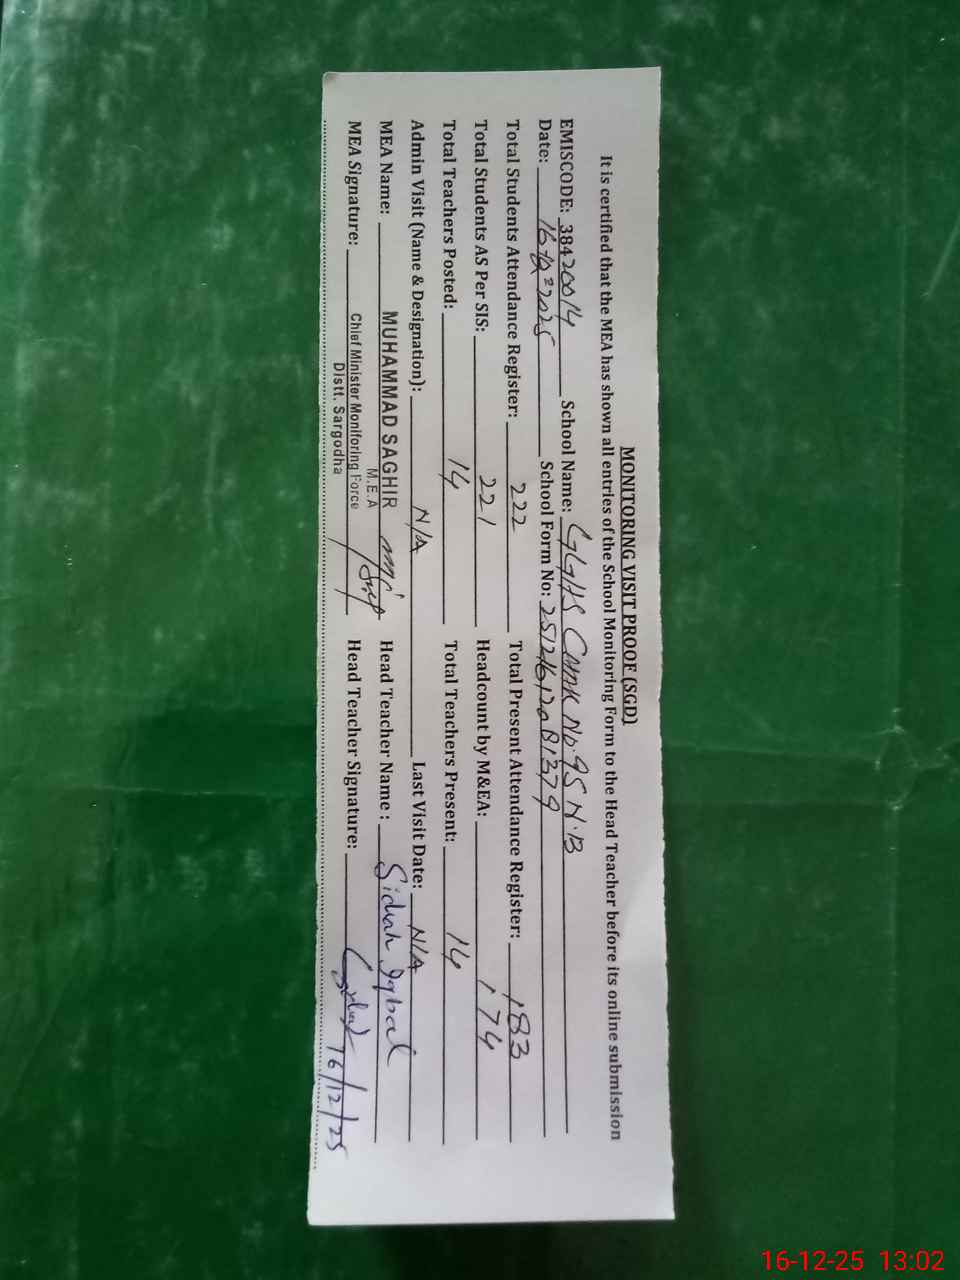 MONITORING VISIT PROOF (SGD)
It is certified that the MEA has shown all entries of the School Monitoring Form to the Head Teacher before its online submission
EMISCODE: 38420014 School Name: GGHS CHAK No. 95 N.B
Date: 16-12-2025 School Form No: 25121612081379
Total Students Attendance Register: 222 Total Present Attendance Register: 183
Total Students AS Per SIS: 221 Headcount by M&EA: 174
Total Teachers Posted: 14 Total Teachers Present: 14
Admin Visit (Name & Designation): N/A Last Visit Date: N/A
MEA Name: MUHAMMAD SAGHIR Head Teacher Name : Sidrah Iqbal
M.E.A
MEA Signature: Chief Minister Monitoring Force Head Teacher Signature: 16/12/25
Distt. Sargodha
16-12-25 13:02